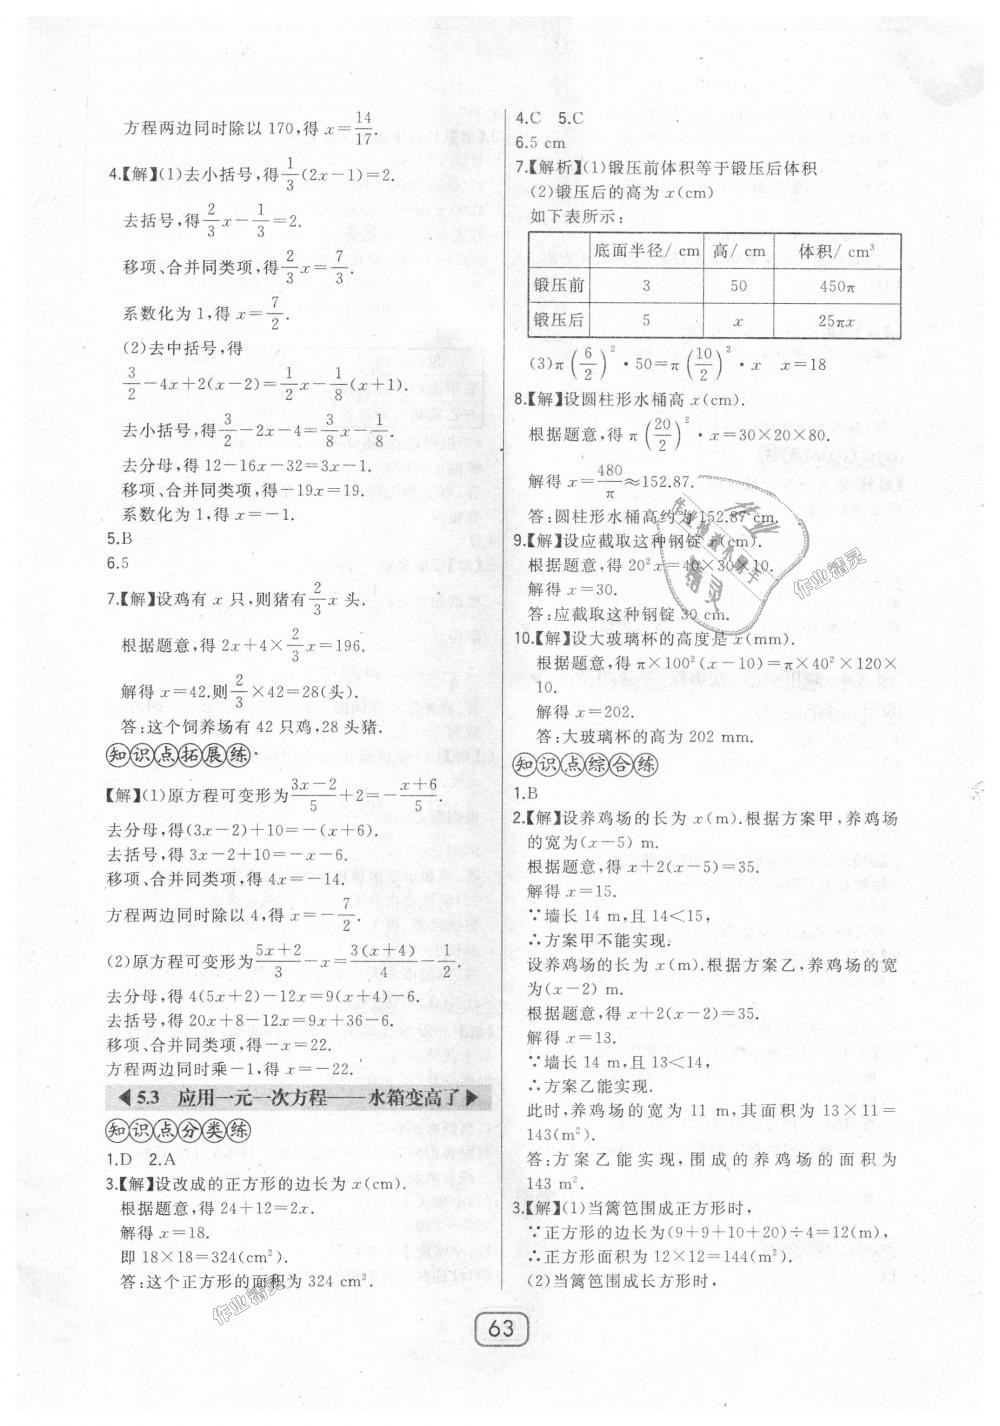 方程两边同时除以 170,得 x=14/17.
4.【解】(1)去小括号,得1/3(2x−1)=2.
去括号,得2/3x−1/3=2.
移项、合并同类项,得2/3x=7/3.
系数化为 1,得 x=7/2.
(2)去中括号,得
3/2−4x+2(x−2)=1/2x−1/8(x+1).
去小括号,得3/2−2x−4=3/8x−1/8.
去分母,得 12−16x−32=3x−1.
移项、合并同类项,得−19x=19.
系数化为 1,得 x=−1.
5.B
6.5
7.【解】设鸡有 x 只,则猪有2/3x 头.
根据题意,得 2x+4×2/3x=196.
解得 x=42.则2/3×42=28(头).
答:这个饲养场有 42 只鸡,28 头猪.
知识点拓展练
【解】(1)原方程可变形为(3x−2)/5+2=−(x+6)/5.
去分母,得(3x−2)+10=−(x+6).
去括号,得 3x−2+10=−x−6.
移项、合并同类项,得 4x=−14.
方程两边同时除以 4,得 x=−7/2.
(2)原方程可变形为(5x+2)/3−x=3(x+4)/4−1/2.
去分母,得 4(5x+2)−12x=9(x+4)−6.
去括号,得 20x+8−12x=9x+36−6.
移项、合并同类项,得−x=22.
方程两边同时乘−1,得 x=−22.
5.3 应用一元一次方程——水箱变高了
知识点分类练
1.D 2.A
3.【解】设改成的正方形的边长为 x(cm).
根据题意,得 24+12=2x.
解得 x=18.
即 18×18=324(cm²).
答:这个正方形的面积为 324 cm².
4.C 5.C
6.5 cm
7.【解析】(1)锻压前体积等于锻压后体积
(2)锻压后的高为 x(cm)
如下表所示:
底面半径/ cm 高/ cm 体积/ cm³
锻压前 3 50 450π
锻压后 5 x 25πx
(3)π(6/2)²·50=π(10/2)²·x x=18
8.【解】设圆柱形水桶高 x(cm).
根据题意,得 π(20/2)²·x=30×20×80.
解得 x=480/π≈152.87.
答:圆柱形水桶高约为 152.87 cm.
9.【解】设应截取这种钢锭 x(cm).
根据题意,得 20²x=40×30×10.
解得 x=30.
答:应截取这种钢锭 30 cm.
10.【解】设大玻璃杯的高度是 x(mm).
根据题意,得 π×100²(x−10)=π×40²×120×
10.
解得 x=202.
答:大玻璃杯的高为 202 mm.
知识点综合练
1.B
2.【解】设养鸡场的长为 x(m).根据方案甲,养鸡场
的宽为(x−5) m.
根据题意,得 x+2(x−5)=35.
解得 x=15.
∵墙长 14 m,且 14<15,
∴方案甲不能实现.
设养鸡场的长为 x(m).根据方案乙,养鸡场的宽
为(x−2) m.
根据题意,得 x+2(x−2)=35.
解得 x=13.
∵墙长 14 m,且 13<14,
∴方案乙能实现.
此时,养鸡场的宽为 11 m,其面积为 13×11=
143(m²).
答:方案乙能实现,围成的养鸡场的面积为
143 m².
3.【解】(1)当篱笆围成正方形时,
∵正方形的边长为(9+9+10+20)÷4=12(m),
∴正方形面积为 12×12=144(m²).
(2)当篱笆围成长方形时,
作业精灵
作业精灵
63